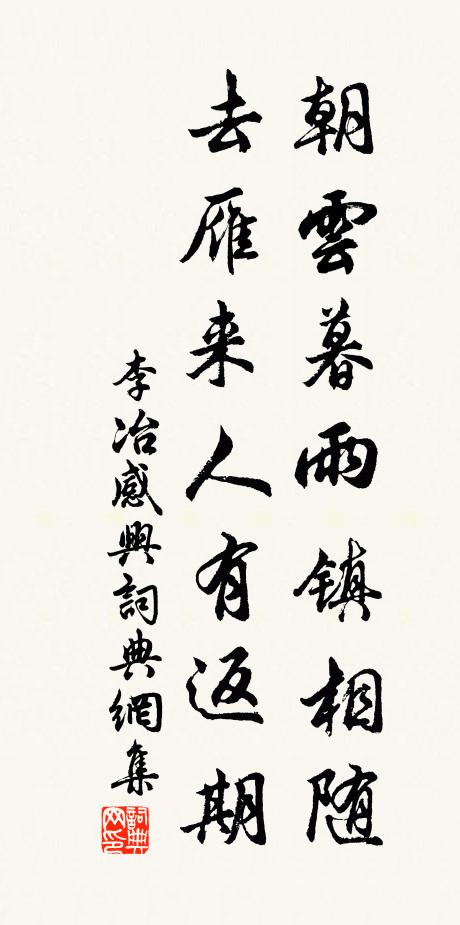 朝雲暮雨镇相随
去雁来人有返期
李冶感興詞典網集
詞典网印